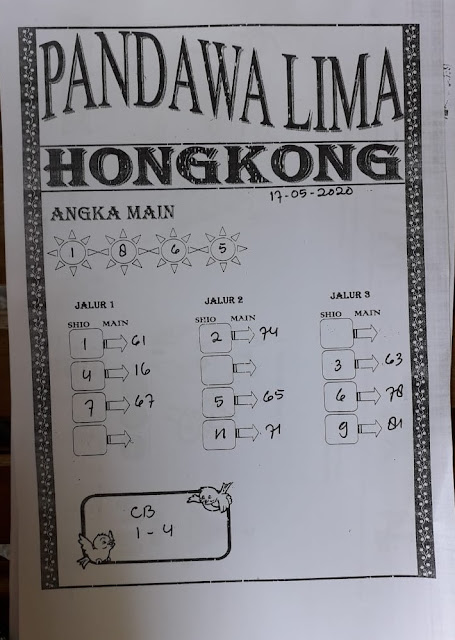 PANDAWA LIMA
HONGKONG
17-05-2020
ANGKA MAIN
1 8 6 5
JALUR 1 JALUR 2 JALUR 3
SHIO MAIN SHIO MAIN SHIO MAIN
1 61 2 74
4 16 3 63
7 67 5 65 6 78
11 71 9 81
CB
1 - 4